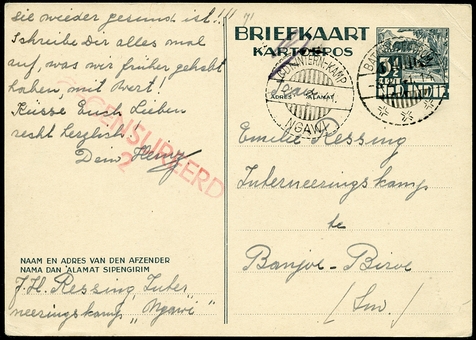 sie wieder gesund ist!!!
Schreibe Dir alles mal
auf, was wir früher gehabt
haben, mit Wert!
Küsse Euch Lieben
recht herzlich
Dein Heinz
GECENSUREERD
2
NAAM EN ADRES VAN DEN AFZENDER
NAMA DAN ALAMAT SIPENGIRIM
J. H. Ressing, Inter
neeringskamp „Ngawi"
BRIEFKAART
KARTOEPOS
ADRES ALAMAT
INTERN-KAMP
NGAWI
3½
CENT
Emilie Ressing
Interneeringskamp
te
Banjoe-Biroe